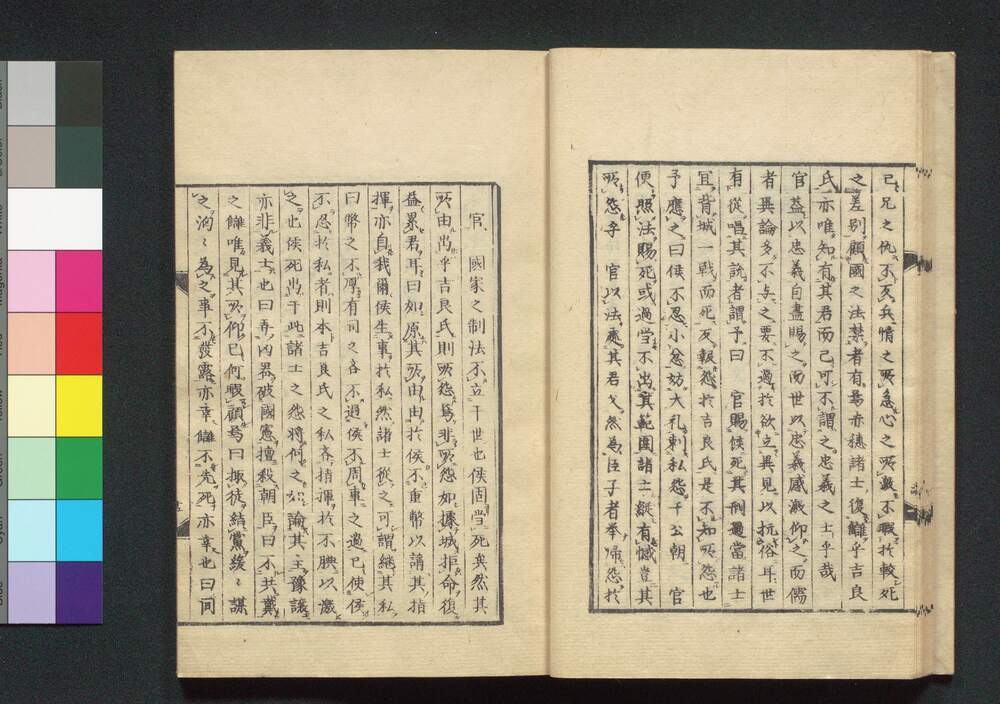 己兄之仇不反兵情之所急心之所激不暇於較死
之差别顧國之法禁者有焉赤穗諸士復讎乎吉良
氏亦唯知有其君而已可不謂之忠義之士乎哉
官益以忠義自盡賜之而世以忠義感激仰之而儒
者異論多不与之要不過於欲立異見以抗俗耳世
有從唱其説者謂予曰　官賜侯死其刑過當諸士
宜背城一戰而死反報怨於吉良氏是不知所怨也
予應之曰侯不忍小忿妨大礼剌私怨于公朝　官
便照法賜死或過當不出其範圍諸士縱有憾豈其
所怨乎　官以法處其君父然為臣子者举歸怨於
官國家之制法不立于世也侯固當死矣然其
所由出乎吉良氏則所怨焉非所怨如據城拒命復
益累君耳曰如原其所由由於侯不重幣以請其指
揮亦自我爾侯生事於私然諸士從之可謂継其私
曰幣之不厚有司之吝不過侯不周事之過已使侯
不忍於私者則本吉良氏之私吝指揮於不腆以激
之也侯死出于此諸士之怨將何之如論其主豫讓
亦非義士也曰弄凶器破國憲擅殺朝臣曰不共戴
之讎唯見其所仰已何暇顧焉曰掫徒結黨緩〻謀
之洶〻為之事不發露亦幸讎不先死亦幸也曰同